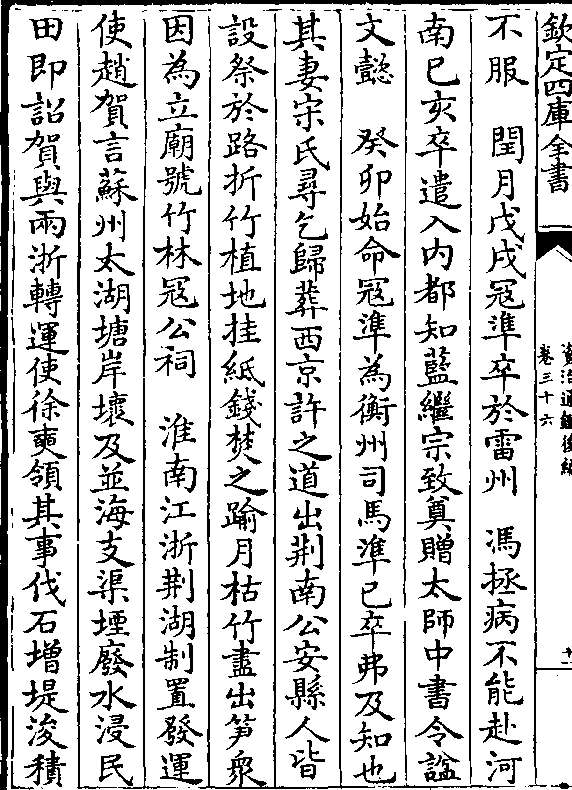 欽定四庫全書
資治通鑑後編
卷三十六
不服　閏月戊戌冦準卒於雷州　馮拯病不能赴河
南已亥卒遣入内都知藍繼宗致奠贈太師中書令諡
文懿　癸卯始命冦準為衡州司馬準已卒弗及知也
其妻宋氏尋乞歸葬西京許之道出荆南公安縣人皆
設祭於路折竹植地挂紙錢焚之踰月枯竹盡出笋衆
因為立廟號竹林冦公祠　淮南江浙荆湖制置發運
使趙賀言蘇州太湖塘岸壞及並海支渠堙廢水浸民
田即詔賀與兩浙轉運使徐奭領其事伐石增堤浚積